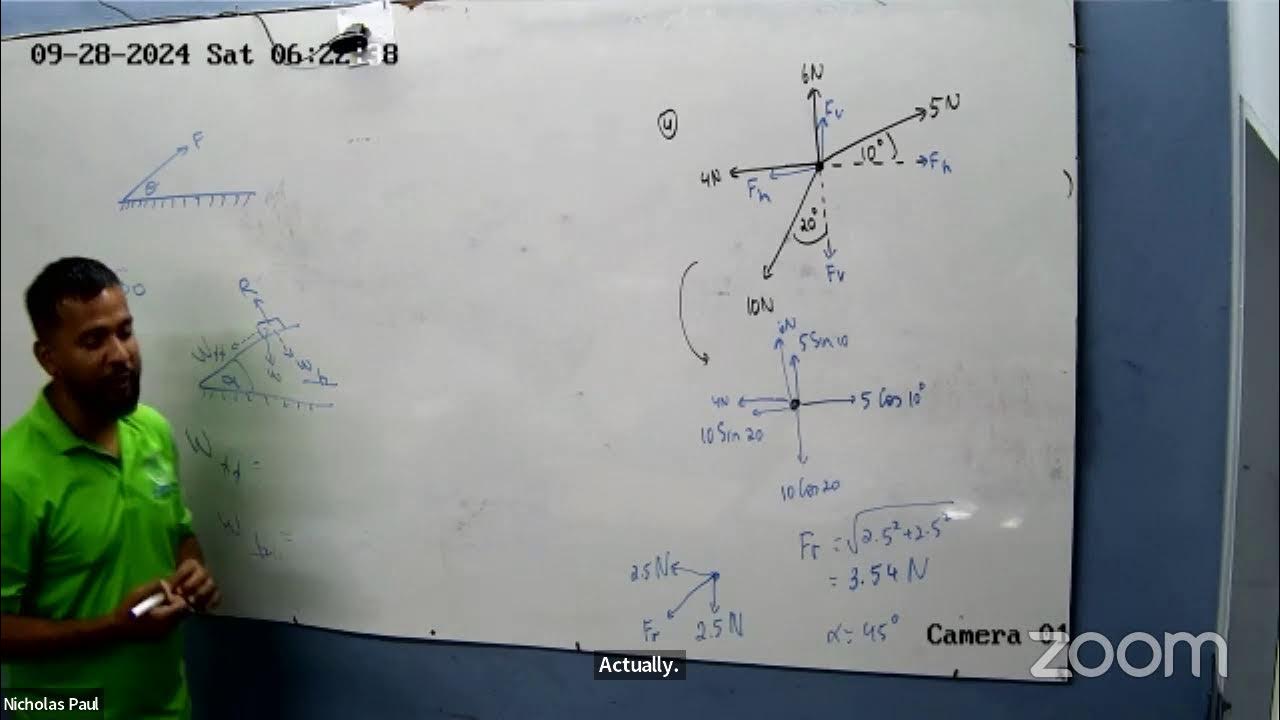 09-28-2024 Sat 06:22:38
F
θ
R
W
α
W
W
W
=
W
=
④
6N
Fv
5N
10°
Fh
4N
Fh
20°
Fv
10N
6N
5 Sin 10
4N
5 Cos 10°
10 Sin 20
10 Cos 20
Fr = √2.5²+2.5²
= 3.54 N
2.5N
Fr
2.5N
α = 45°
Camera 01
zoom
Actually.
Nicholas Paul